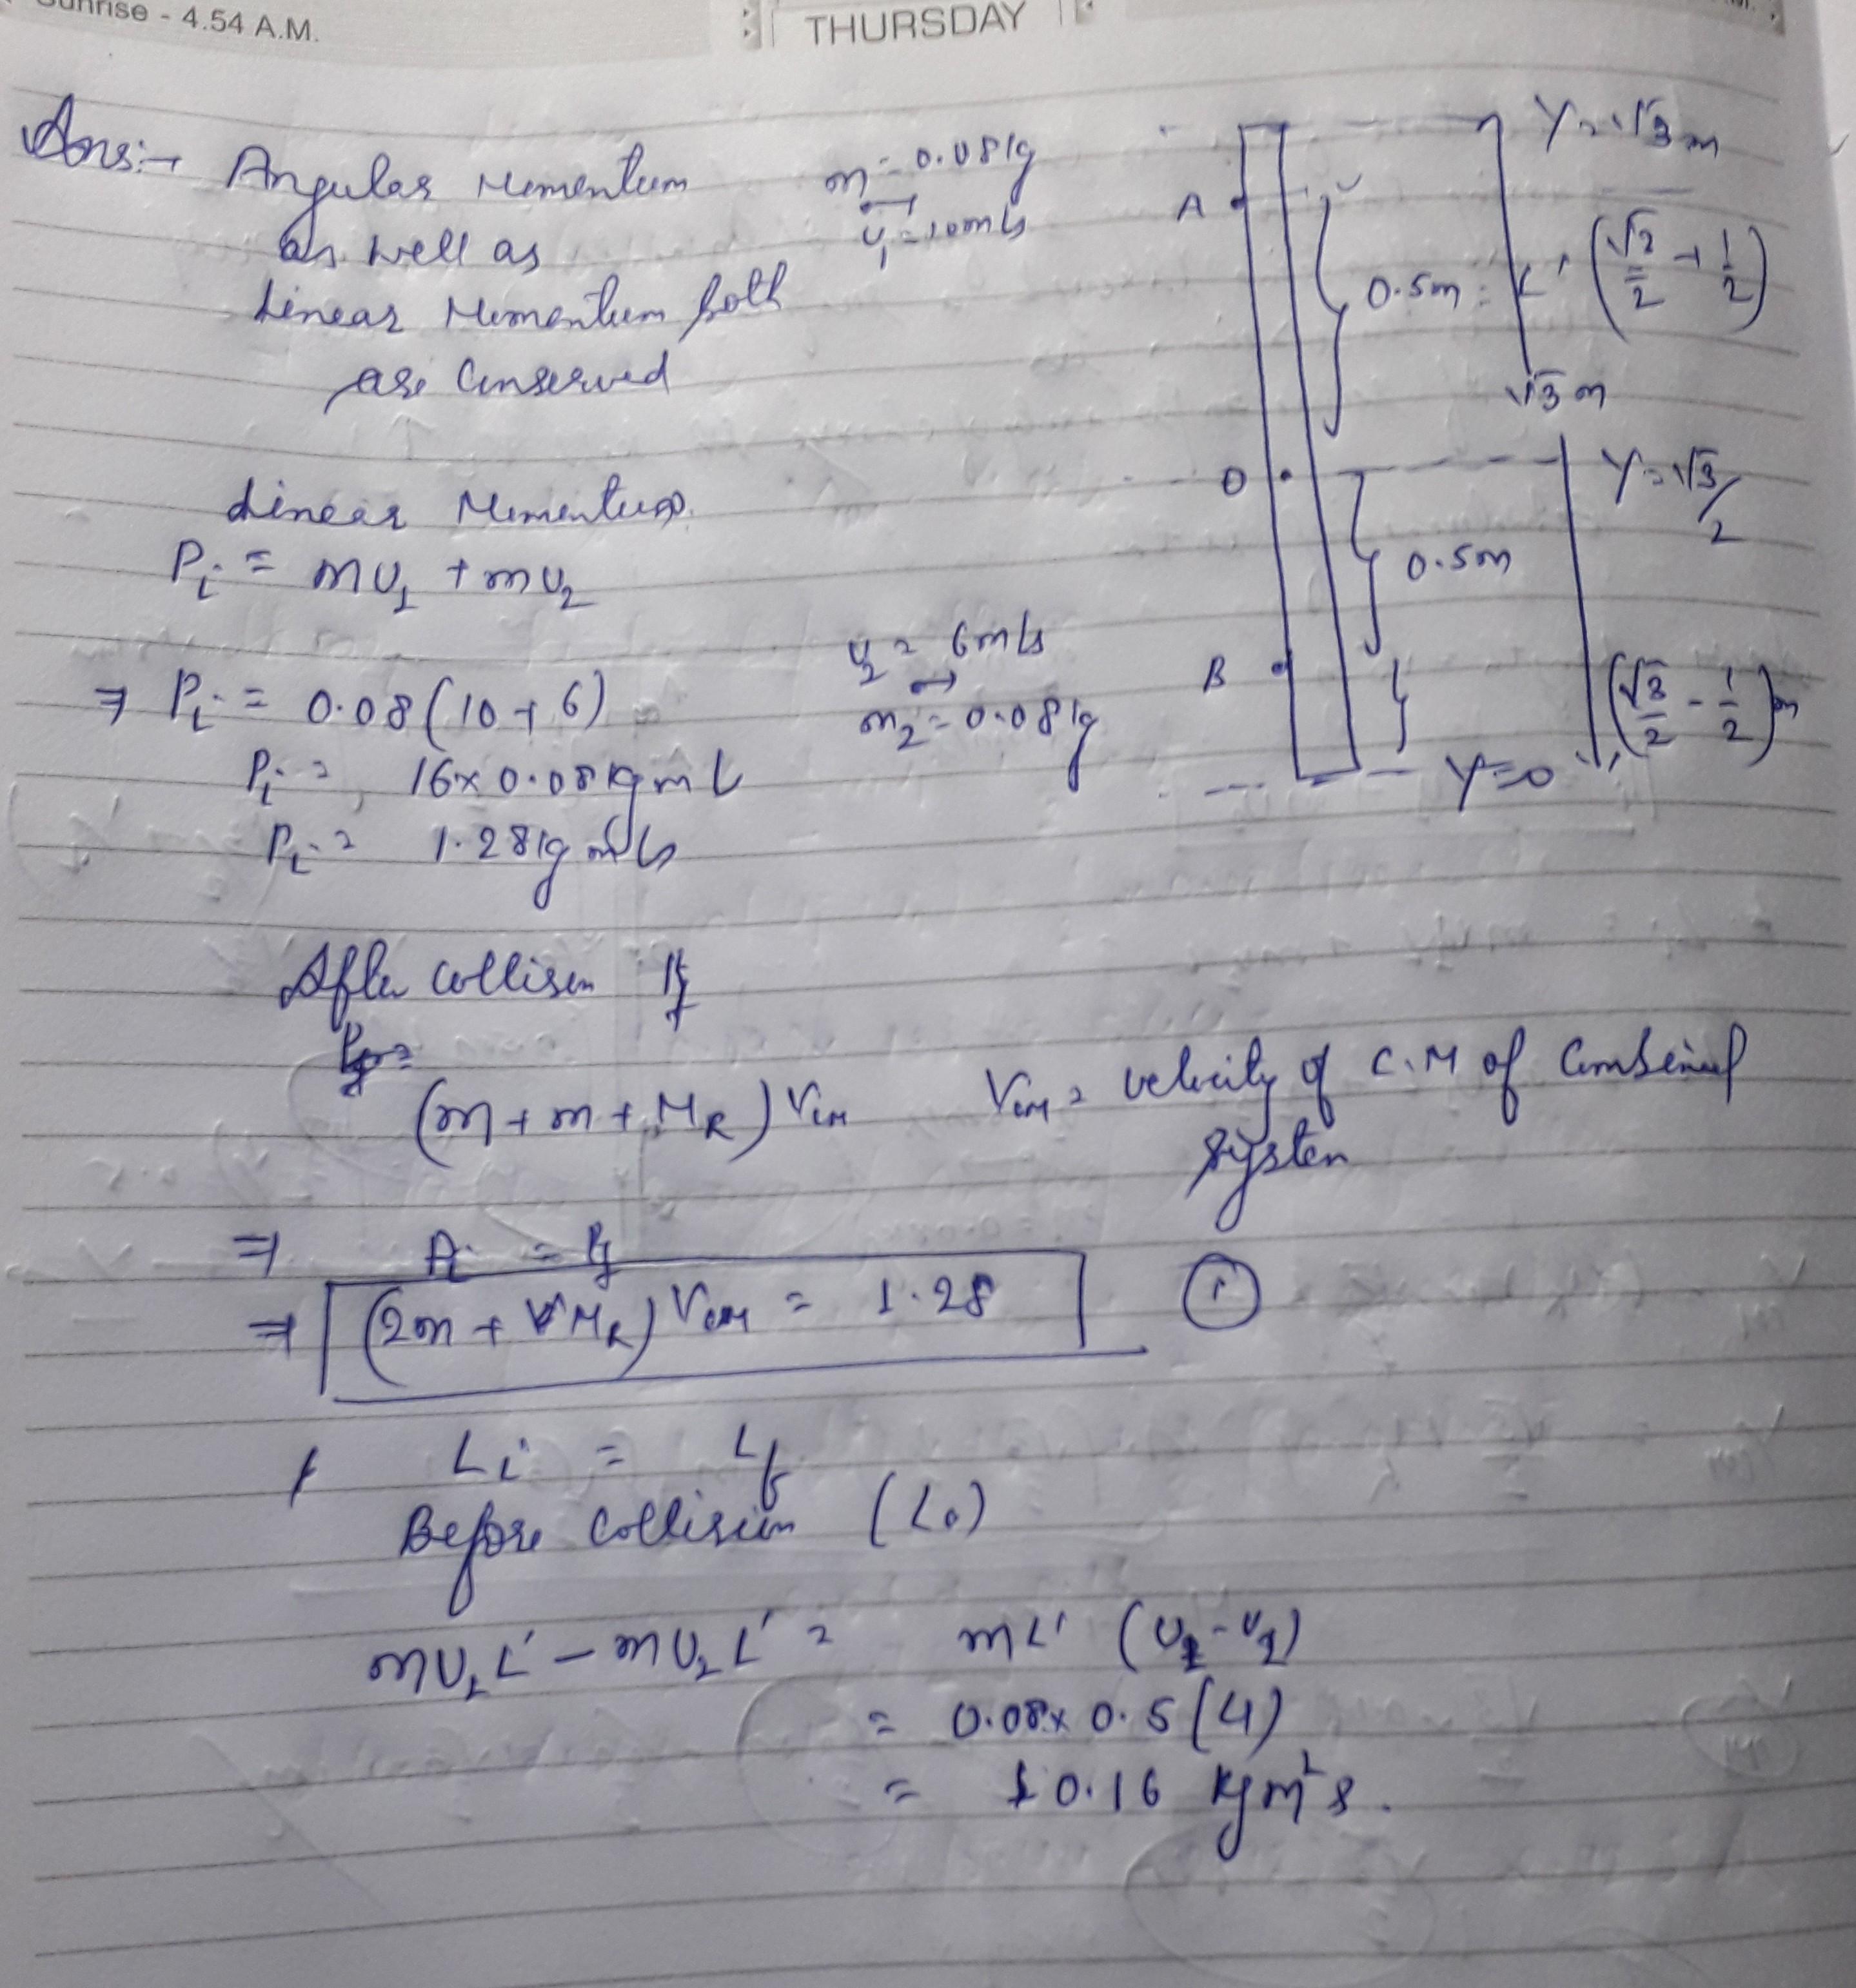 Sunrise - 4.54 A.M.
THURSDAY
Ans:→ Angular Momentum
as well as
Linear Momentum both
are Conserved
m = 0.08kg
u₁ = 10m/s
A
0.5m = L'
Y = √3 m
(√3/2 + 1/2)
√3 m
O
Y = √3/2
0.5m
B
(√3/2 - 1/2)m
Y=0
Linear Momentum
Pi = mu₁ + mu₂
u₂ = 6m/s
m₂ = 0.08kg
⇒ Pi = 0.08(10+6)
Pi = 16x0.08kgm/
Pi = 1.28kgm/s
After collision Pf
Pf=
(m+m+M_R) Vcm Vcm = velocity of C.M of Combined
system
⇒ Pi = Pf
⇒ (2m + M_R) Vcm = 1.28 ①
Li = Lf
Before Collision (Lo)
mu₁L' - mu₂L' = mL' (u₁-u₂)
= 0.08x0.5(4)
= 0.16 Kgm²s.